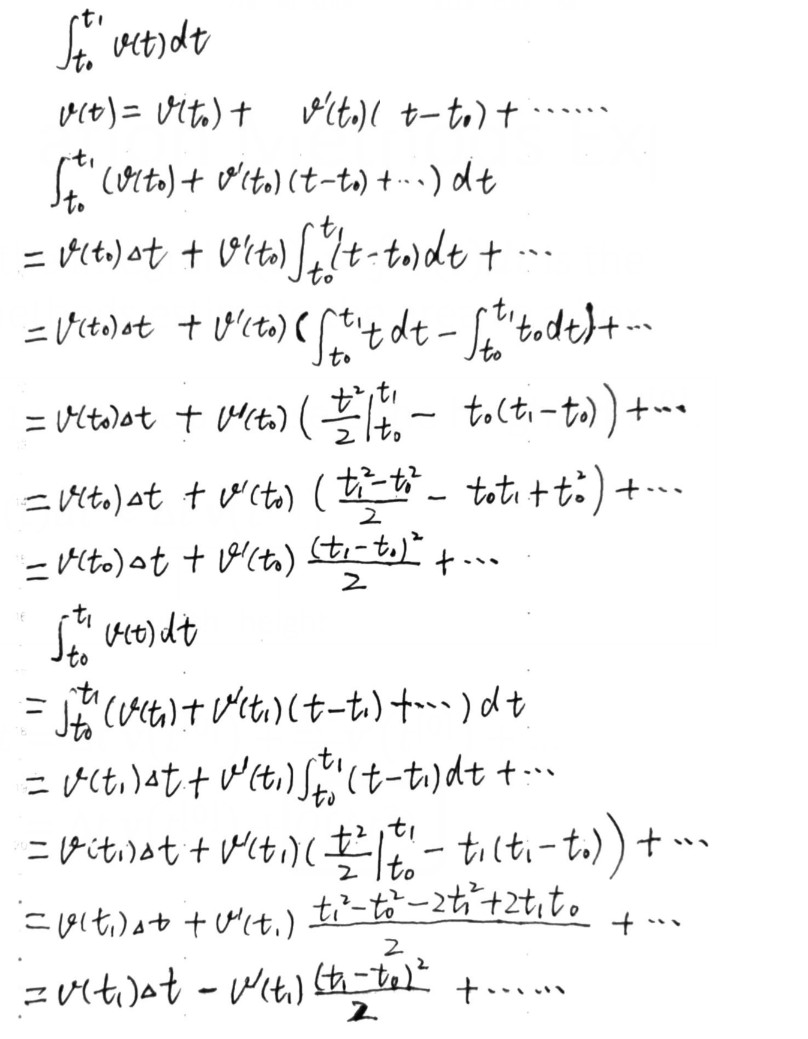 ∫_{t₀}^{t₁} v(t)dt
v(t) = v(t₀) + v'(t₀)(t-t₀) + ······
∫_{t₀}^{t₁} (v(t₀) + v'(t₀)(t-t₀) + ···) dt
= v(t₀)Δt + v'(t₀) ∫_{t₀}^{t₁} (t-t₀)dt + ···
= v(t₀)Δt + v'(t₀) (∫_{t₀}^{t₁} t dt - ∫_{t₀}^{t₁} t₀dt) + ···
= v(t₀)Δt + v'(t₀) (t²/2 |_{t₀}^{t₁} - t₀(t₁-t₀)) + ···
= v(t₀)Δt + v'(t₀) ((t₁²-t₀²)/2 - t₀t₁ + t₀²) + ···
= v(t₀)Δt + v'(t₀) (t₁-t₀)²/2 + ···
∫_{t₀}^{t₁} v(t)dt
= ∫_{t₀}^{t₁} (v(t₁) + v'(t₁)(t-t₁) + ···) dt
= v(t₁)Δt + v'(t₁) ∫_{t₀}^{t₁} (t-t₁)dt + ···
= v(t₁)Δt + v'(t₁) (t²/2 |_{t₀}^{t₁} - t₁(t₁-t₀)) + ···
= v(t₁)Δt + v'(t₁) (t₁²-t₀²-2t₁²+2t₁t₀)/2 + ···
= v(t₁)Δt - v'(t₁) (t₁-t₀)²/2 + ······